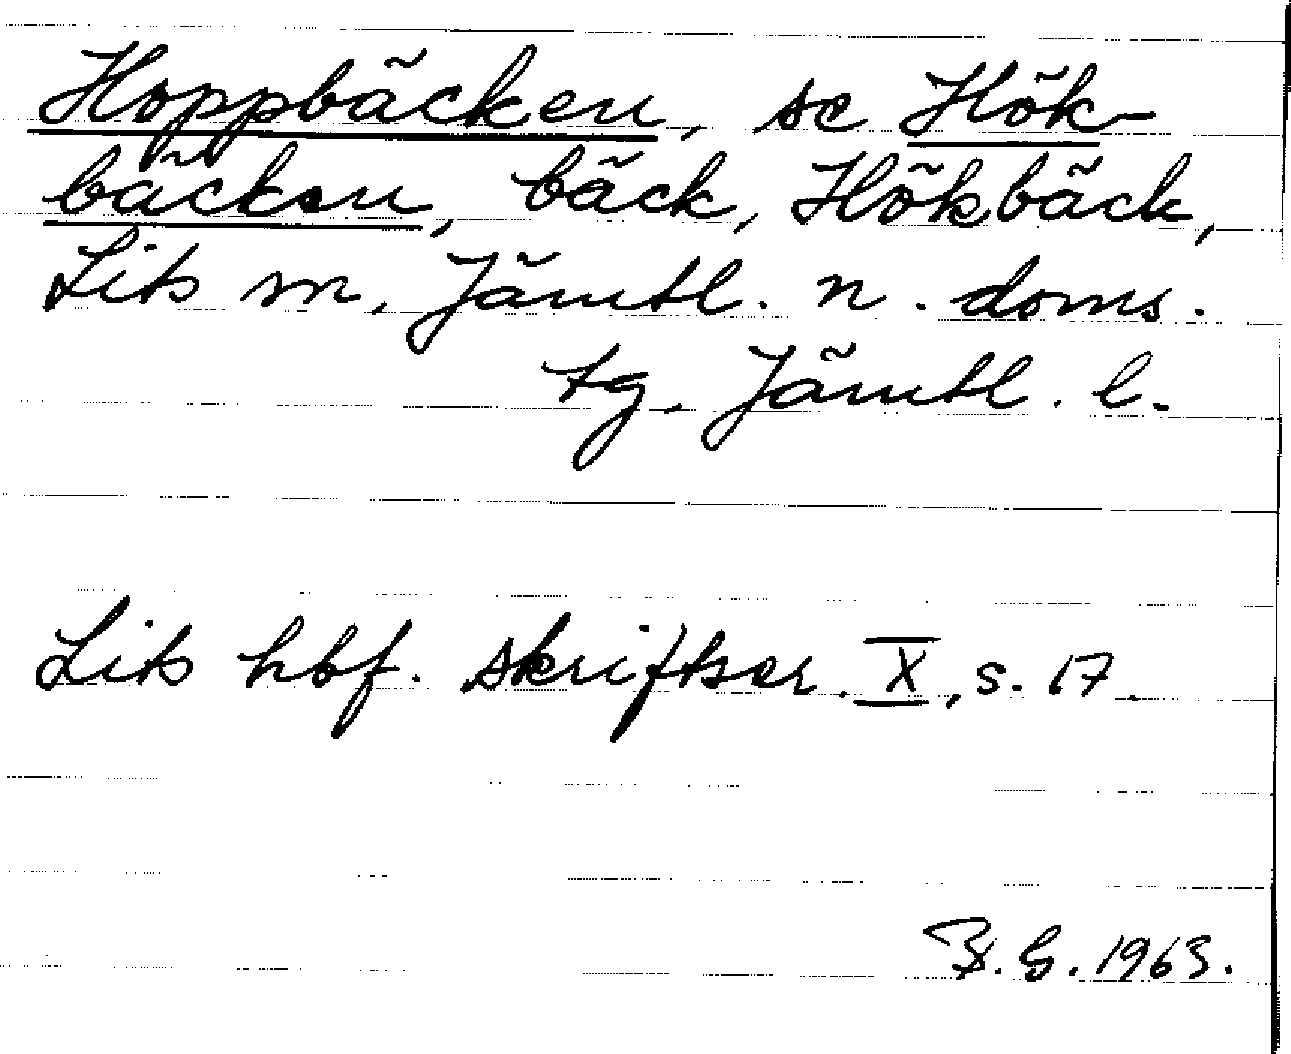 Hoppbäcken, se Hök-
bäcken, bäck, Hökbäck,
Lits sn, Jämtl. n. doms.
tg. Jämtl. l.
Lits hbf. skriftser. X, s. 17.
G. 1963.